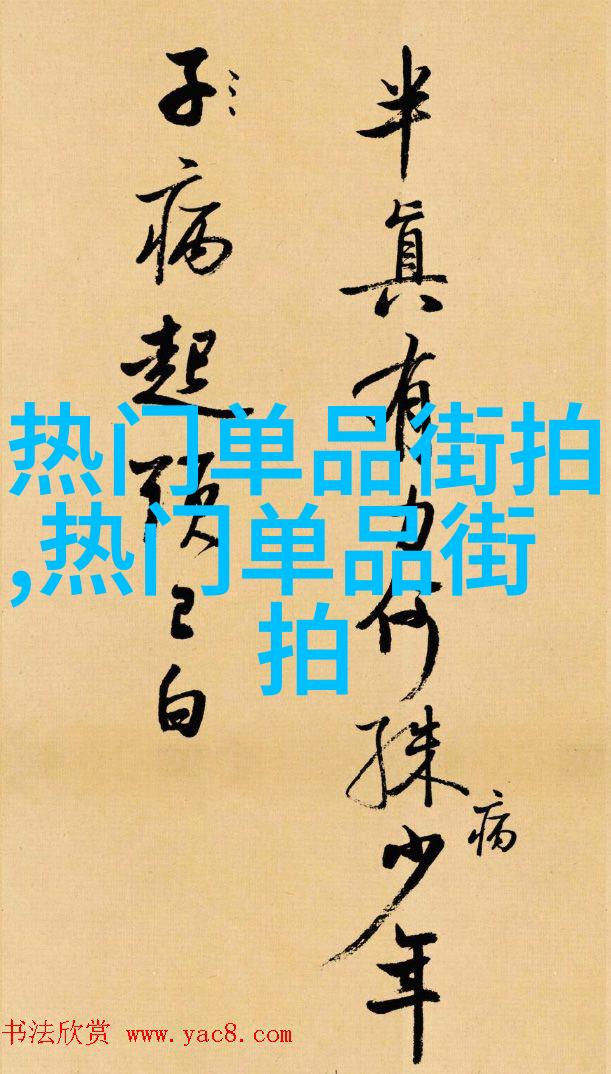 半真有力何殊少年
病
子病起頭已白
热门单品街拍
,热门单品街
拍
书法欣赏 www.yac8.com